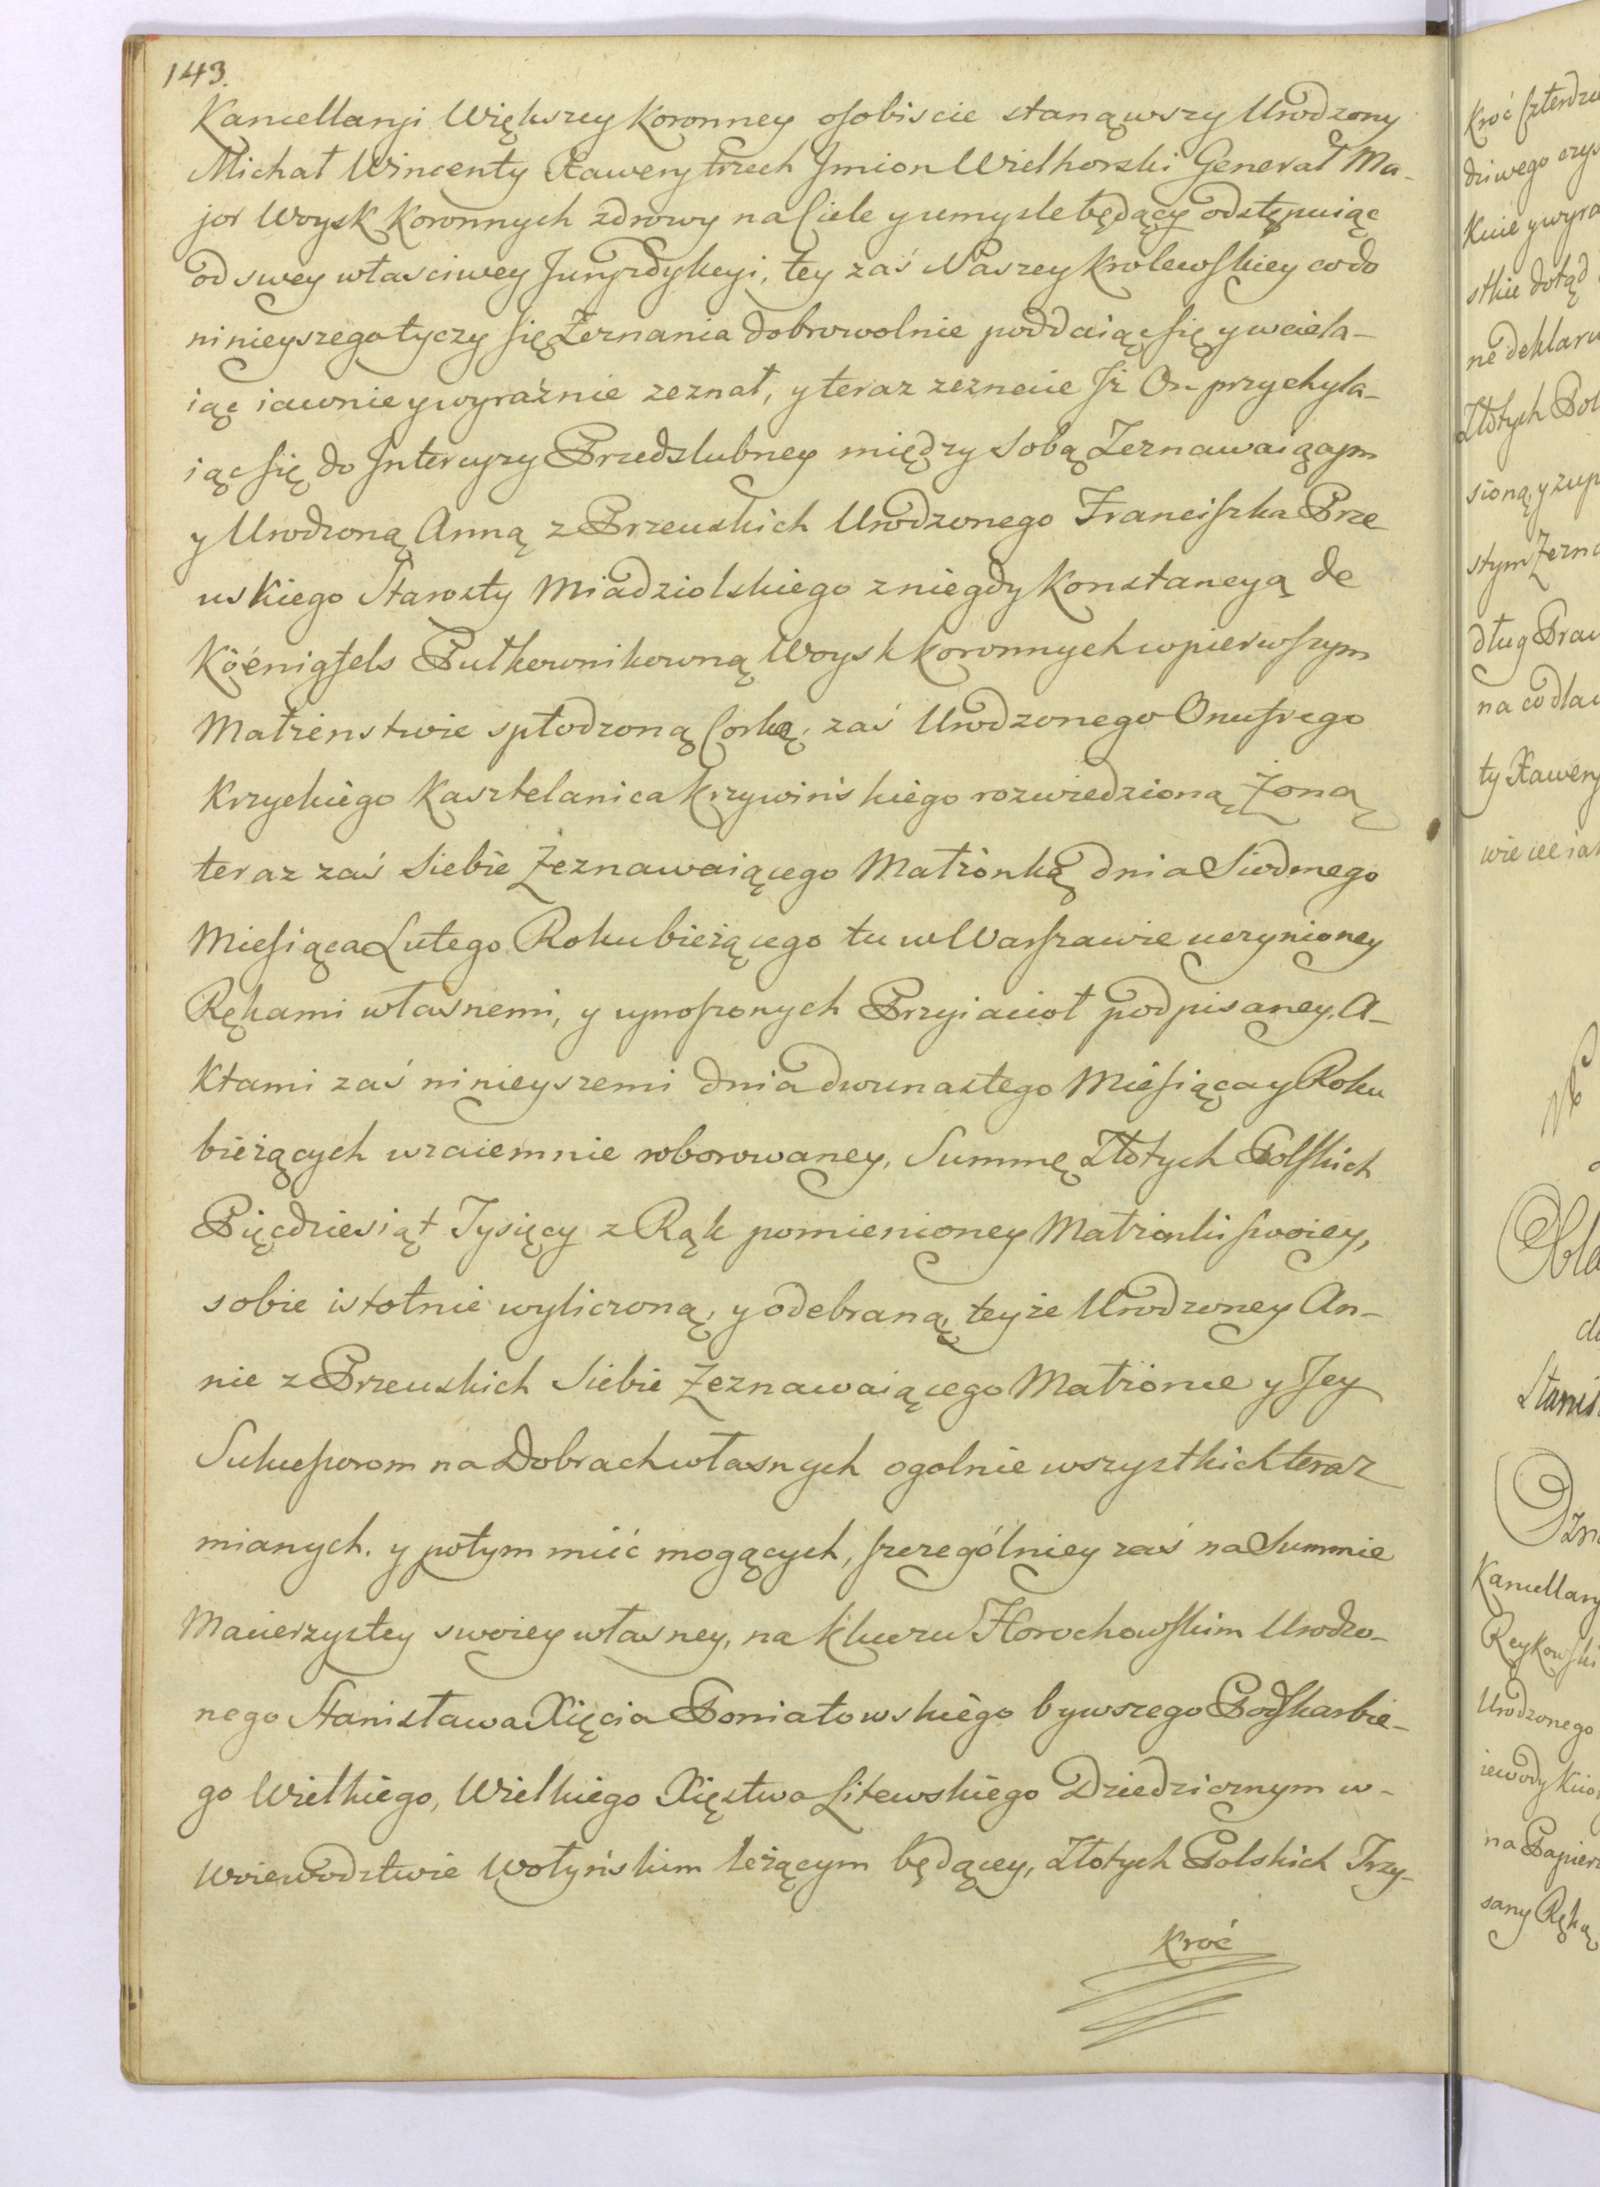 143.
Kancellaryi Większey Koronney osobiscie stanąwszy Urodzony
Michał Wincenty Xawery trzech Jmion Wielhorski Generał Ma-
jor Woysk Koronnych zdrowy na Ciele y umysle będący odstępuiąc
od swey własciwey Juryzdykcyi, tey zaś Naszey Krolewskiey co do
ninieyszego tyczy się Zeznania dobrowolnie poddaiąc się y wciela-
iąc iawnie y wyraźnie zeznał, y teraz zeznaie Jż On przychyla-
iąc się do Jntercyzy Przedslubney między Sobą Zeznawaiącym
y Urodzoną Anną z Przeuskich Urodzonego Franciszka Prze
uskiego Starosty Miadziolskiego z niegdy Konstancyą de
Köenigfels Pułkownikowną Woysk Koronnych w pierwszym
Małżenstwie spłodzoną Corką, zaś Urodzonego Onufrego
Krzyckiego Kasztelanica Krzywińskiego rozwiedzioną Żoną
teraz zaś Siebie Zeznawaiącego Małżonką dnia Siodmego
Miesiąca Lutego Roku bieżącego tu w Warszawie uczynioney
Rękami własnemi, y uproszonych Przyiacioł podpisaney. A-
Ktami zaś ninieyszemi dnia dwunastego Miesiąca y Roku
bieżących wzaiemnie roborowaney, Summę Złotych Polskich
Pięcdziesiąt Tysięcy z Rąk pomienioney Małżonki swoiey,
sobie istotnie wyliczoną, y odebraną, teyże Urodzoney An-
nie z Przeuskich Siebie Zeznawaiącego Małżonce y Jey
Sukcessorom na Dobrach własnych ogolnie wszystkich teraz
mianych, y potym mieć mogących, szczególniey zaś na Summie
Macierzystey swoiey własney, na Kluczu Horochowskim Urodzo-
nego Stanisława Xięcia Poniatowskiego bywszego Podskarbie-
go Wielkiego, Wielkiego Xięstwa Litewskiego Dziedzicznym w-
Woiewodztwie Wołyńskim leżącym będącey, Złotych Polskich Trzy-
Kroć
Kroć
ne
Złotych Pol
na co dla
ty Xawery
Stanis
Kancellary
Reykowski
Urodzonego
na Papier